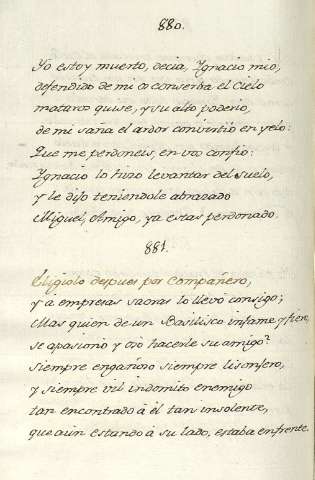 880.
Yo estoy muerto, decia, Ygnacio mio,
defendido de mi os conserba el Cielo
mataros quise, y su alto poderio,
de mi saña el ardor convirtió en yelo:
Que me perdoneis, en vro confio:
Ygnacio lo hizo levantar del suelo,
y le dijo teniendole abrazado
Miguel, Amigo, ya estas perdonado.
881.
Eligiolo despues por Compañero,
y a empresas sacras lo llevó consigo;
Mas quien de un Basilisco infame y fiero,
se apasionó y osó hacerle su amigo?
siempre engañoso siempre lisonjero,
y siempre vil indomito enemigo
tan encontrado à él tan insolente,
que aùn estando à su lado, estaba enfrente.